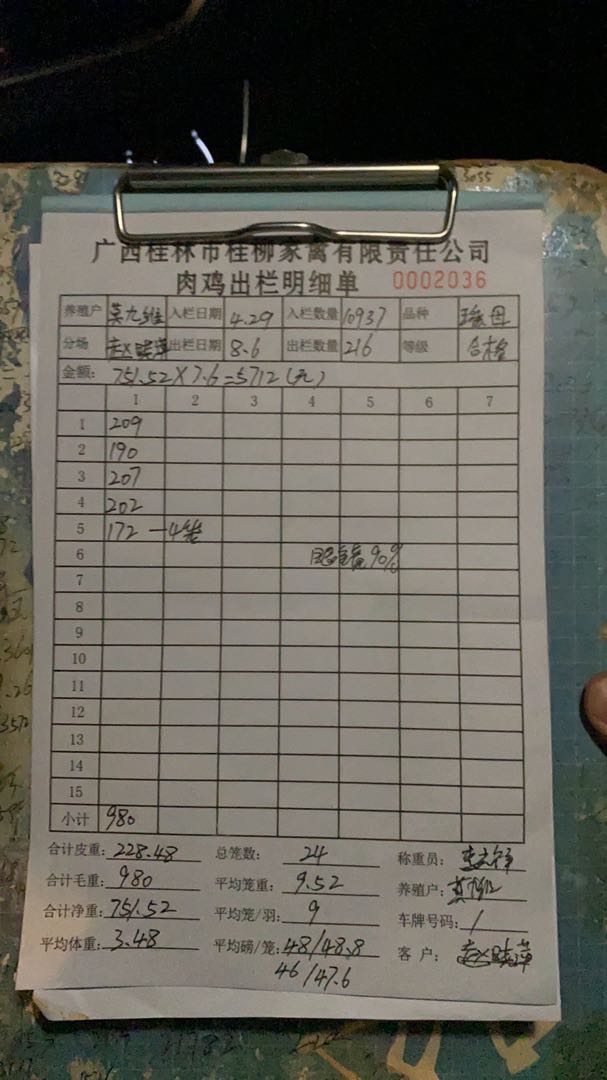 广西桂林市桂柳家禽有限责任公司
肉鸡出栏明细单 0002036
养殖户 莫九维 入栏日期 4.29 入栏数量 10937 品种 瑶母
分场 赵晓萍 出栏日期 8.6 出栏数量 216 等级 合格
金额: 751.52×7.6=5712(元)
1 2 3 4 5 6 7
1 209
2 190
3 207
4 202
5 172 —4笼
6 90%
7
8
9
10
11
12
13
14
15
小计 980
合计皮重: 228.48 总笼数: 24 称重员:
合计毛重: 980 平均笼重: 9.52 养殖户:
合计净重: 751.52 平均笼/羽: 9 车牌号码: /
平均体重: 3.48 平均磅/笼: 48/48.8 客户: 赵晓萍
46/47.6